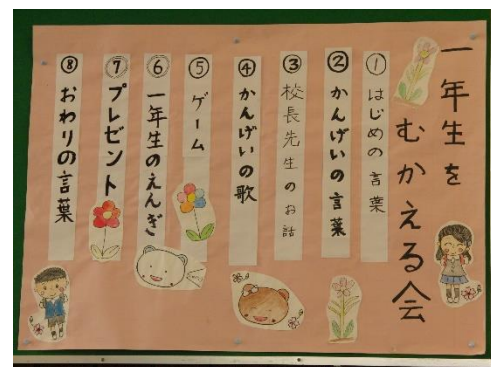 一年生を
むかえる会
①はじめの言葉
②かんげいの言葉
③校長先生のお話
④かんげいの歌
⑤ゲーム
⑥一年生のえんぎ
⑦プレゼント
⑧おわりの言葉